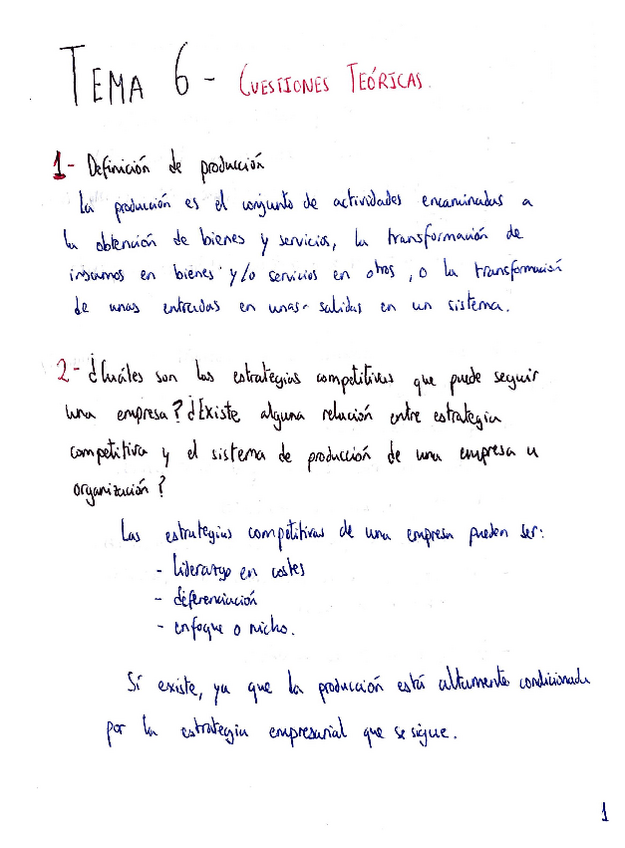 TEMA 6 - CUESTIONES TEÓRICAS.
1- Definición de producción
La producción es el conjunto de actividades encaminadas a
la obtención de bienes y servicios, la transformación de
insumos en bienes y/o servicios en otros, o la transformación
de unas entradas en unas salidas en un sistema.
2- ¿Cuáles son las estrategias competitivas que puede seguir
una empresa? ¿Existe alguna relación entre estrategia
competitiva y el sistema de producción de una empresa u
organización?
Las estrategias competitivas de una empresa pueden ser:
- liderazgo en costes
- diferenciación
- enfoque o nicho.
Sí existe, ya que la producción está altamente condicionada
por la estrategia empresarial que se sigue.
1